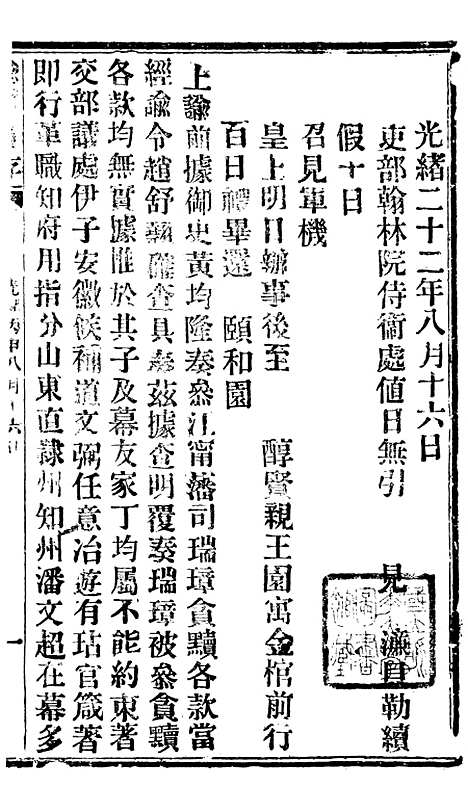 光緒二十二年八月十六日
吏部翰林院侍衞處值日無引 見 濂貝勒續
假十日
召見軍機
皇上明日辦事後至 醇賢親王園寓金棺前行
百日禮畢還 頤和園
上諭前據御史黃均隆奏叅江甯藩司瑞璋貪黷各款當
經諭令趙舒翹確查具奏茲據查明覆奏瑞璋被叅貪黷
各款均無實據惟於其子及幕友家丁均屬不能約束著
交部議處伊子安徽候補道文彌任意冶遊有玷官箴著
即行革職知府用指分山東直隸州知州潘文超在幕多
光緒丙申八月十六日
一